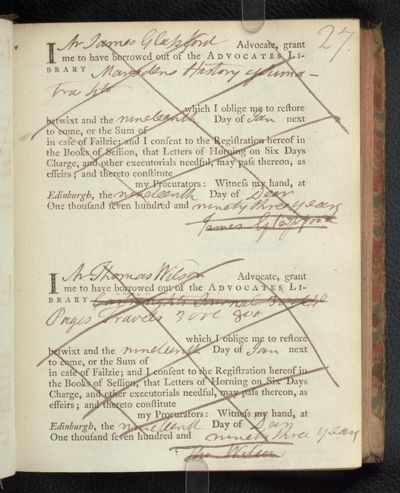 27.
I Mr James Glassford Advocate, grant
me to have borrowed out of the ADVOCATES LI-
BRARY Marsdens History of Suma-
tra 4to
which I oblige me to reſtore
betwixt and the nineteenth Day of Jan next
to come, or the Sum of
in caſe of Failzie; and I conſent to the Regiſtration hereof in
the Books of Seſſion, that Letters of Horning on Six Days
Charge, and other executorials needful, may paſs thereon, as
effeirs; and thereto conſtitute
my Procurators: Witneſs my hand, at
Edinburgh, the nineteenth Day of
One thouſand ſeven hundred and ninety three years
James Glassford
I Mr Thomas Wilson Advocate, grant
me to have borrowed out of the ADVOCATES LI-
BRARY Cartwrights Journal 3 vols
Pages Travels 3 vol 8vo
which I oblige me to reſtore
betwixt and the nineteenth Day of Jan next
to come, or the Sum of
in caſe of Failzie; and I conſent to the Regiſtration hereof in
the Books of Seſſion, that Letters of Horning on Six Days
Charge, and other executorials needful, may paſs thereon, as
effeirs; and thereto conſtitute
my Procurators: Witneſs my hand, at
Edinburgh, the nineteenth Day of
One thouſand ſeven hundred and ninety three years
Tho Wilson